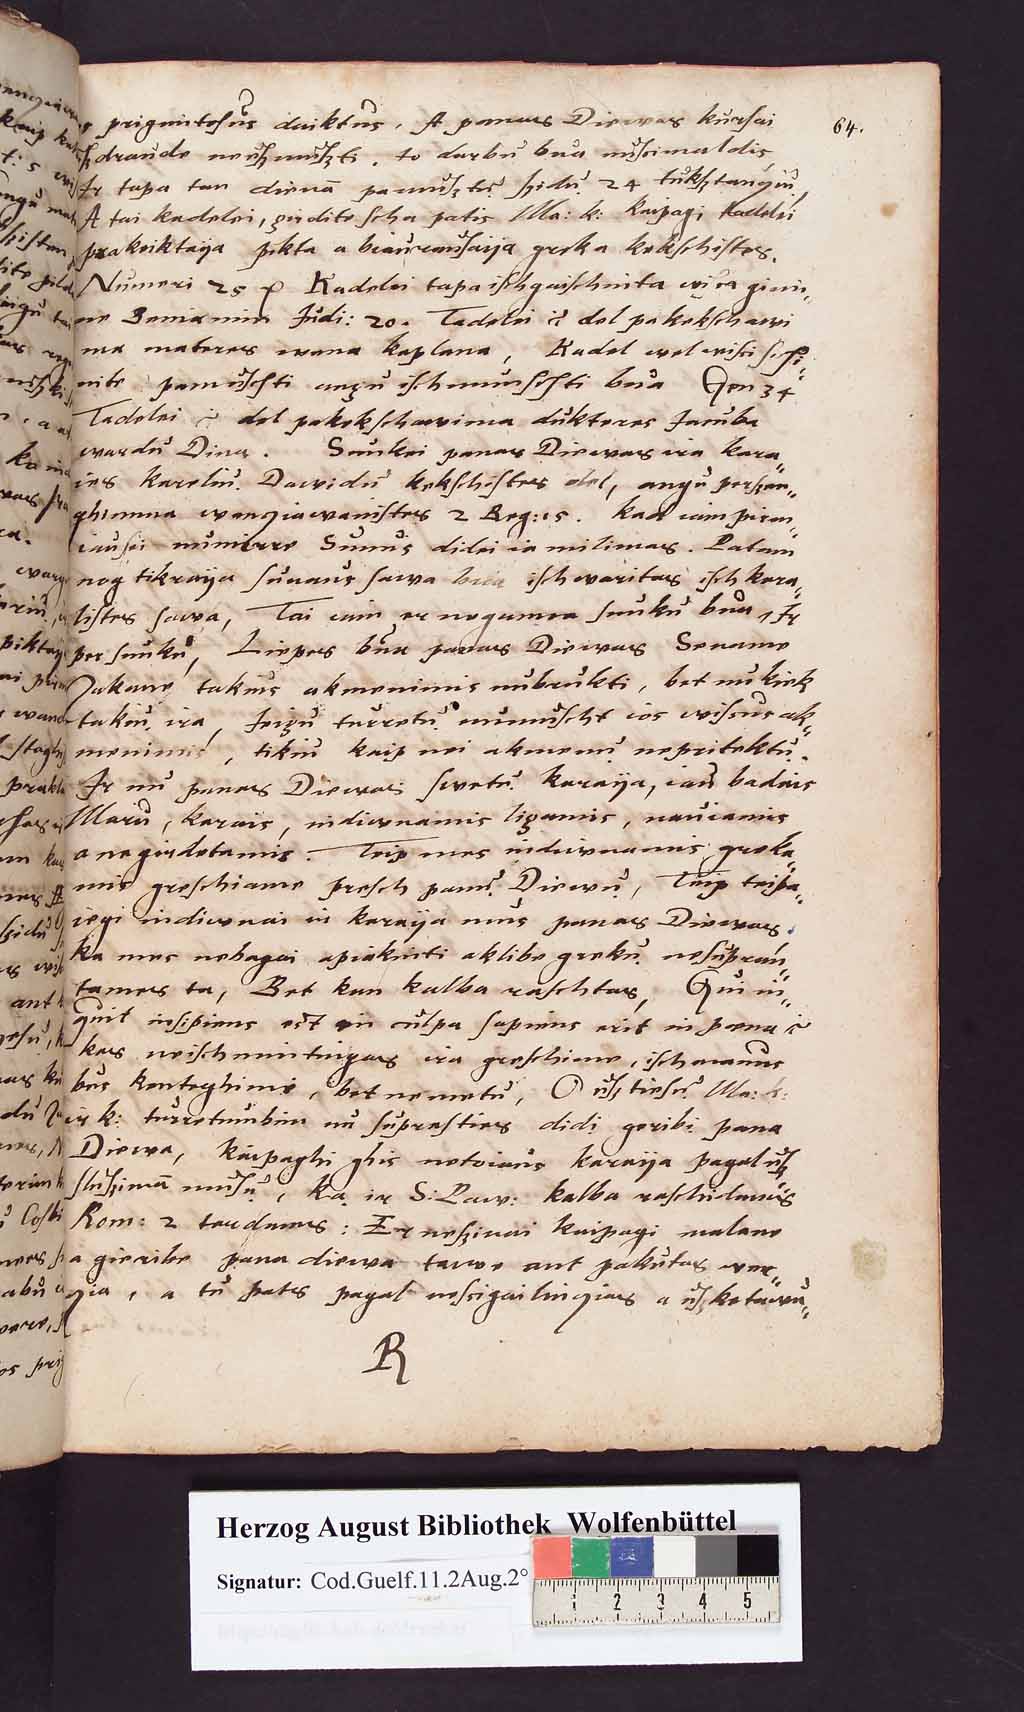 64.
prigimtosus daiktus, A panas Diewas kursai
draude neußmußti, to darbu bua nusimaldis
Ir tapa tan diena pamußtu ßidu 24 tukßtanczu
A tai kadelei, girdite scha patis Ma: k: kaipagi kadelei
prakeiktaija pikta a biauransaija greka kekschistes.
Numeri 25 p Kadelei tapa ischgaischinta wisa gimi„
ne Beniamin Judi: 20. Tadelei ir del pakekschawi
ma materes wena kaplana, Kadel wel wisi Sichi„
mite pamuschti angu ischmuschti bua Gen 34
Tadelei ir del pakekschawima dukteres Jacuba
wardu Dina. Sunkei panas Diewas ira kara„
ies karaliu Dawidu kekschistes del, angu perßen„
ghimma wencziawanistes 2 Reg: 15. kad iam pirm„
iausei numirre Sunus didei ia milimas. Patam
nog tikraija sunaus sawa bua ischwaritas isch kara„
listes sawa, Tai iam er negumma sunku bua, Ir
per sunku, Liepes bua panas Diewas Sename
Zakane takius akmenimis nubrukti, bet nu kiek
takiu ira, Jeigu turretu numuscht ios wisus ak„
menimis, tikiu kaip nei akmenu nepritektu.
Ir nu panas Diewas swetu karaija, iau badais
Maru, karais, indiwnamis ligamis, nauiamis
a negirdetamis. Teip mes indiwnamis greka„
mis greschiame presch pana Diewu, Teip teipa„
iegi indiwnai ir karaija mus panas Diewas.
ka mes nebagai apiakinti aklibe greku nesupran„
tames ta, Bet kan kalba raschtas, Qui in„
quit insipiens est in culpa sapiens erit in pœna i
kas neischmintingas ira greschime, ischmanus
bus kenteghime, bet nemetu, O ußtiesu Ma: k:
ir k: turretumbim nu suprasties didi geribi pana
Diewa, kaipaghi ghis netoiaus karaija pagal uß
slußima musu, ka ir S: Paw: kalba raschidamas
Rom: 2 tardamas: Er neßinai kaipagi malane
a gieribe pana diewa tawe ant pakutas wer„
czia, a tu pats pagal nesigailinczias a ußketawu„
R
Herzog August Bibliothek Wolfenbüttel
Signatur: Cod.Guelf.11.2Aug.2°
1 2 3 4 5